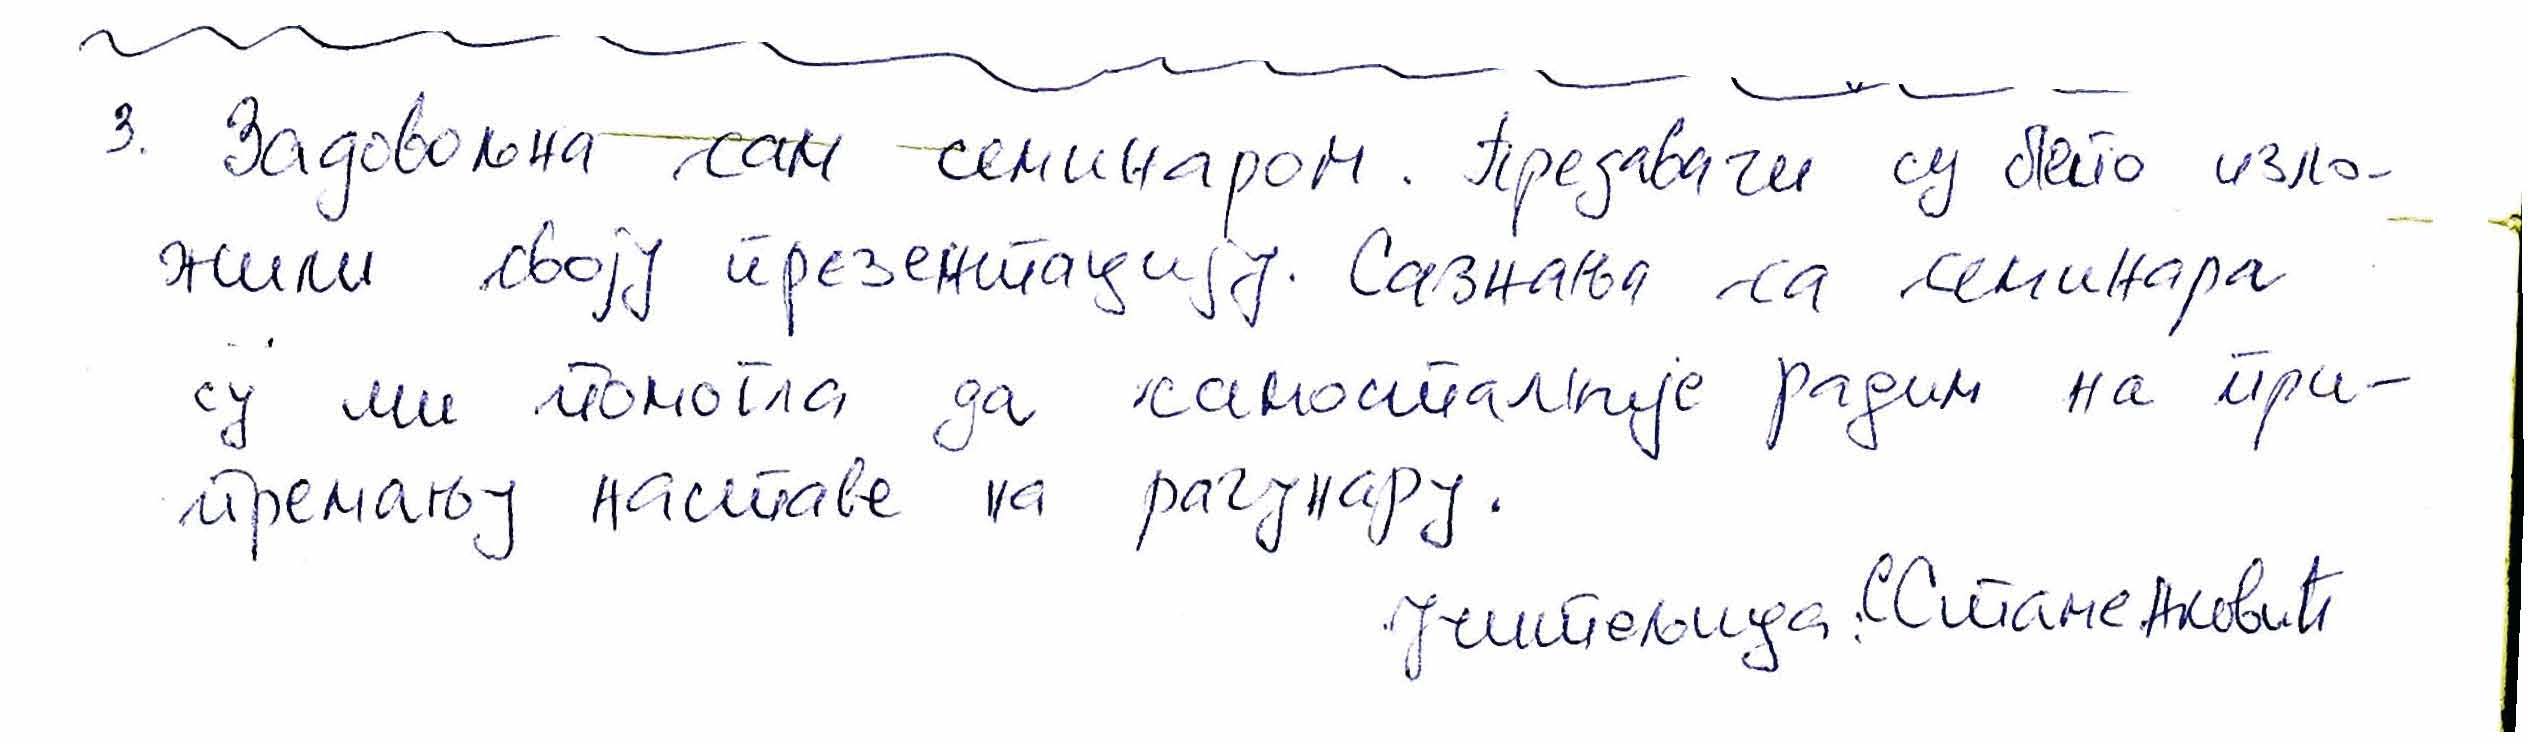 3. Задовољна сам семинаром. Предавачи су лепо изло-
жили своју презентацију. Сазнања са семинара
су ми помогла да самосталније радим на при-
премању наставе на рачунару.
Учитељица: С Станенковић